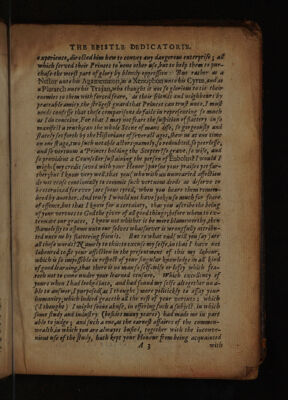 THE EPISTLE DEDICATORIE.
experience, direct him how to convey any dangerous enterprise; all
which served their Princes to none other use, but to help them to pur-
chase the worst part of glory by blondy oppression: But rather as a
Nestor unto his Agamemnon, as a Xenophon unto his Cyrus, and as
a Plutarch unto his Trajan, who thought it not so glorious to tie their
enemies to them with forced feare, as their friends and neighbours by
peaceable amity, the strōgest guard that Princes can trust unto, I must
needs confesse that these comparisons do faile in representing so much
as I do conceive. For that I may not share the suspition of flattery in so
manifest a truth,
stately set forth by the Historians of severall ages, shew me at one time
on one stage, two such notable
and so vertuous a Princes holding the Scepter so grave, so wise, and
so provident a Counseller sustaining the person of Eubulus? I would I
might have credit saved with your Honour pursue your praises yet far-
ther: that I know very well, that you who with an unwearied affection
do not onely continually to commit such vertuous deeds as deserve to
be retained for ever
hed by another. And truly I would not have
of offence, but that I know for a certainty, that you ascribe the being
of your vertues to God the giver of all good things;
verence our praise, I know not whether is be more blameworthy, then
shamelesse to assume unto our selves whatsoever is wrongfully attribu-
ted unto us by flattering friends. But to what end (will you say) are
all these words? Namely to this: to excuse my selfe, in that I have not
laboured to fit your affection in the presentment of this my labour,
which is so impossible in respect of your singular knowledge in all kind
of good learning, that there is no man so selfe-wise or lofty which
not to come under your learned censure. Which excellency of
yours when I had looked into, and had found my selfe altogether un a-
ble to answer, I purposed, as I thought more politickly to assay your
humanity, which indeed graceth all the rest of your vertues; which
(I thought) I might soone abuse, in offering such a subject, in which
some study and industry (besides many yeares) had made me in part
able to judge; and such a one, as the earnest affaires of the common-
wealth, in which you are alwayes busied, together with the inconve-
nient use of the study, hath kept your Honour from being acquainted
A 3
with